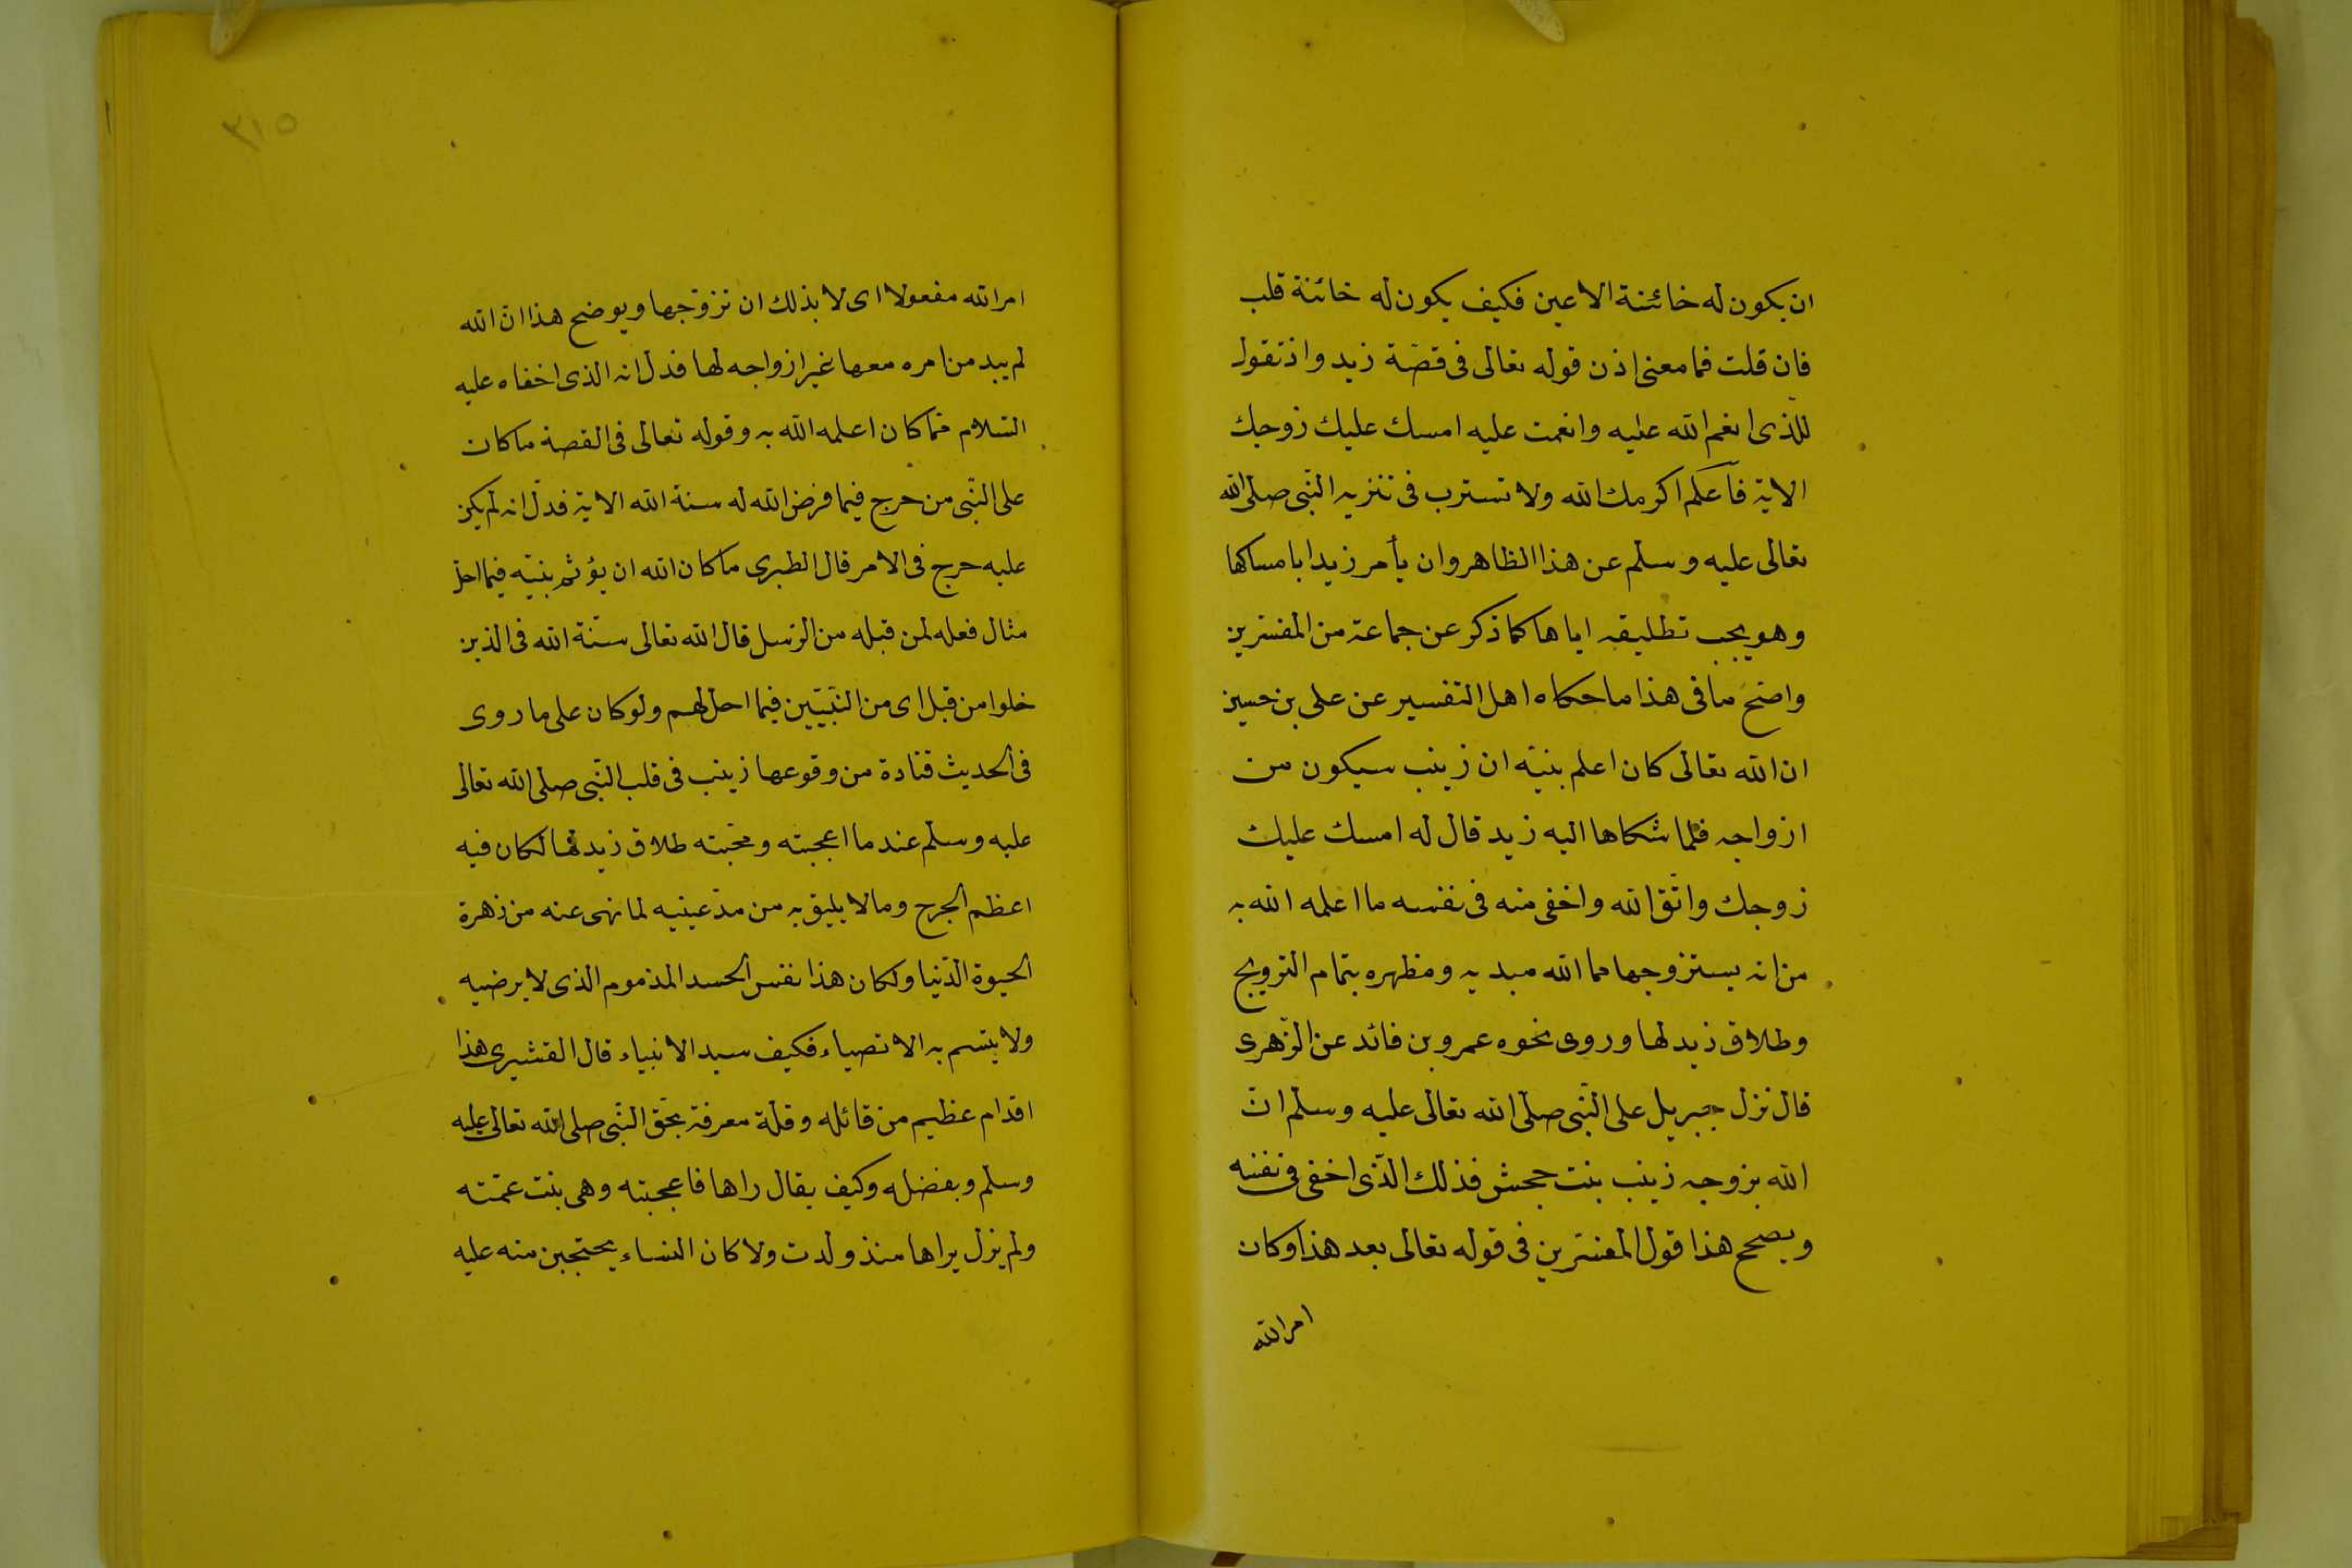 ان يكون له خائنة الاعين فكيف يكون له خائنة قلب
فان قلت فما معنى اذن قوله تعالى فى قصّة زيد واذ تقول
للذى انعم الله عليه وانعمت عليه امسك عليك زوجك
الاية فاعلم اكرمك الله ولا تسترب فى تنزيه النّبى صلى الله
تعالى عليه وسلم عن هذا الظاهر وان يأمر زيدا بامساكها
وهو يحب تطليقه اياها كما ذكر عن جماعة من المفسّرين
واصح ما فى هذا ما حكاه اهل التفسير عن على بن حسين
ان الله تعالى كان اعلم بنيّه ان زينب سيكون من
ازواجه فلما شكاها اليه زيد قال له امسك عليك
زوجك واتّق الله واخفى منه فى نفسه ما اعلمه الله به
من انه يستزوجها مما الله مبديه ومظهره بتمام التزويج
وطلاق زيد لها وروى نحوه عمرو بن فائد عن الزّهرى
قال نزل جبريل على النّبى صلّى الله تعالى عليه وسلم انّ
الله بزوجه زينب بنت جحش فذلك الّذى اخفى فى نفسه
ويصحح هذا قول المفسّرين فى قوله تعالى بعد هذا وكان
امر الله
٣١٥
امر الله مفعولا اى لا بذلك ان تزوّجها ويوضح هذا انّ الله
لم يبد من امره معها غير ازواجه لها فدل انه الذى اخفاه عليه
السّلام ممّا كان اعلمه الله به وقوله تعالى فى القصة ما كان
على النّبى من حرج فيما فرض الله له سنة الله الاية فدلّ انه لم يكن
عليه حرج فى الامر قال الطبرى ما كان الله ان يؤثم بنيّه فيما احل
مثال فعله لمن قبله من الرّسل قال الله تعالى سنّة الله فى الذين
خلوا من قبل اى من النّبيّين فيما احل لهم ولو كان على ما روى
فى الحديث قتادة من وقوعها زينب فى قلب النّبى صلى الله تعالى
عليه وسلم عند ما اعجبته ومحبّته طلاق زيد لها لكان فيه
اعظم الحرج وما لا يليق به من مدّ عينيه لما نهى عنه من زهرة
الحيوة الدّنيا ولكان هذا نفس الحسد المذموم الذى لا يرضيه
ولا يتسم به الاتصياء فكيف سيد الانبياء قال القشيرى هذا
اقدام عظيم من قائله وقلة معرفة بحق النّبى صلى الله تعالى عليه
وسلم وبفضله وكيف يقال راها فاعجبته وهى بنت عمّته
ولم يزل يراها منذ ولدت ولا كان النساء يحتجبن منه عليه